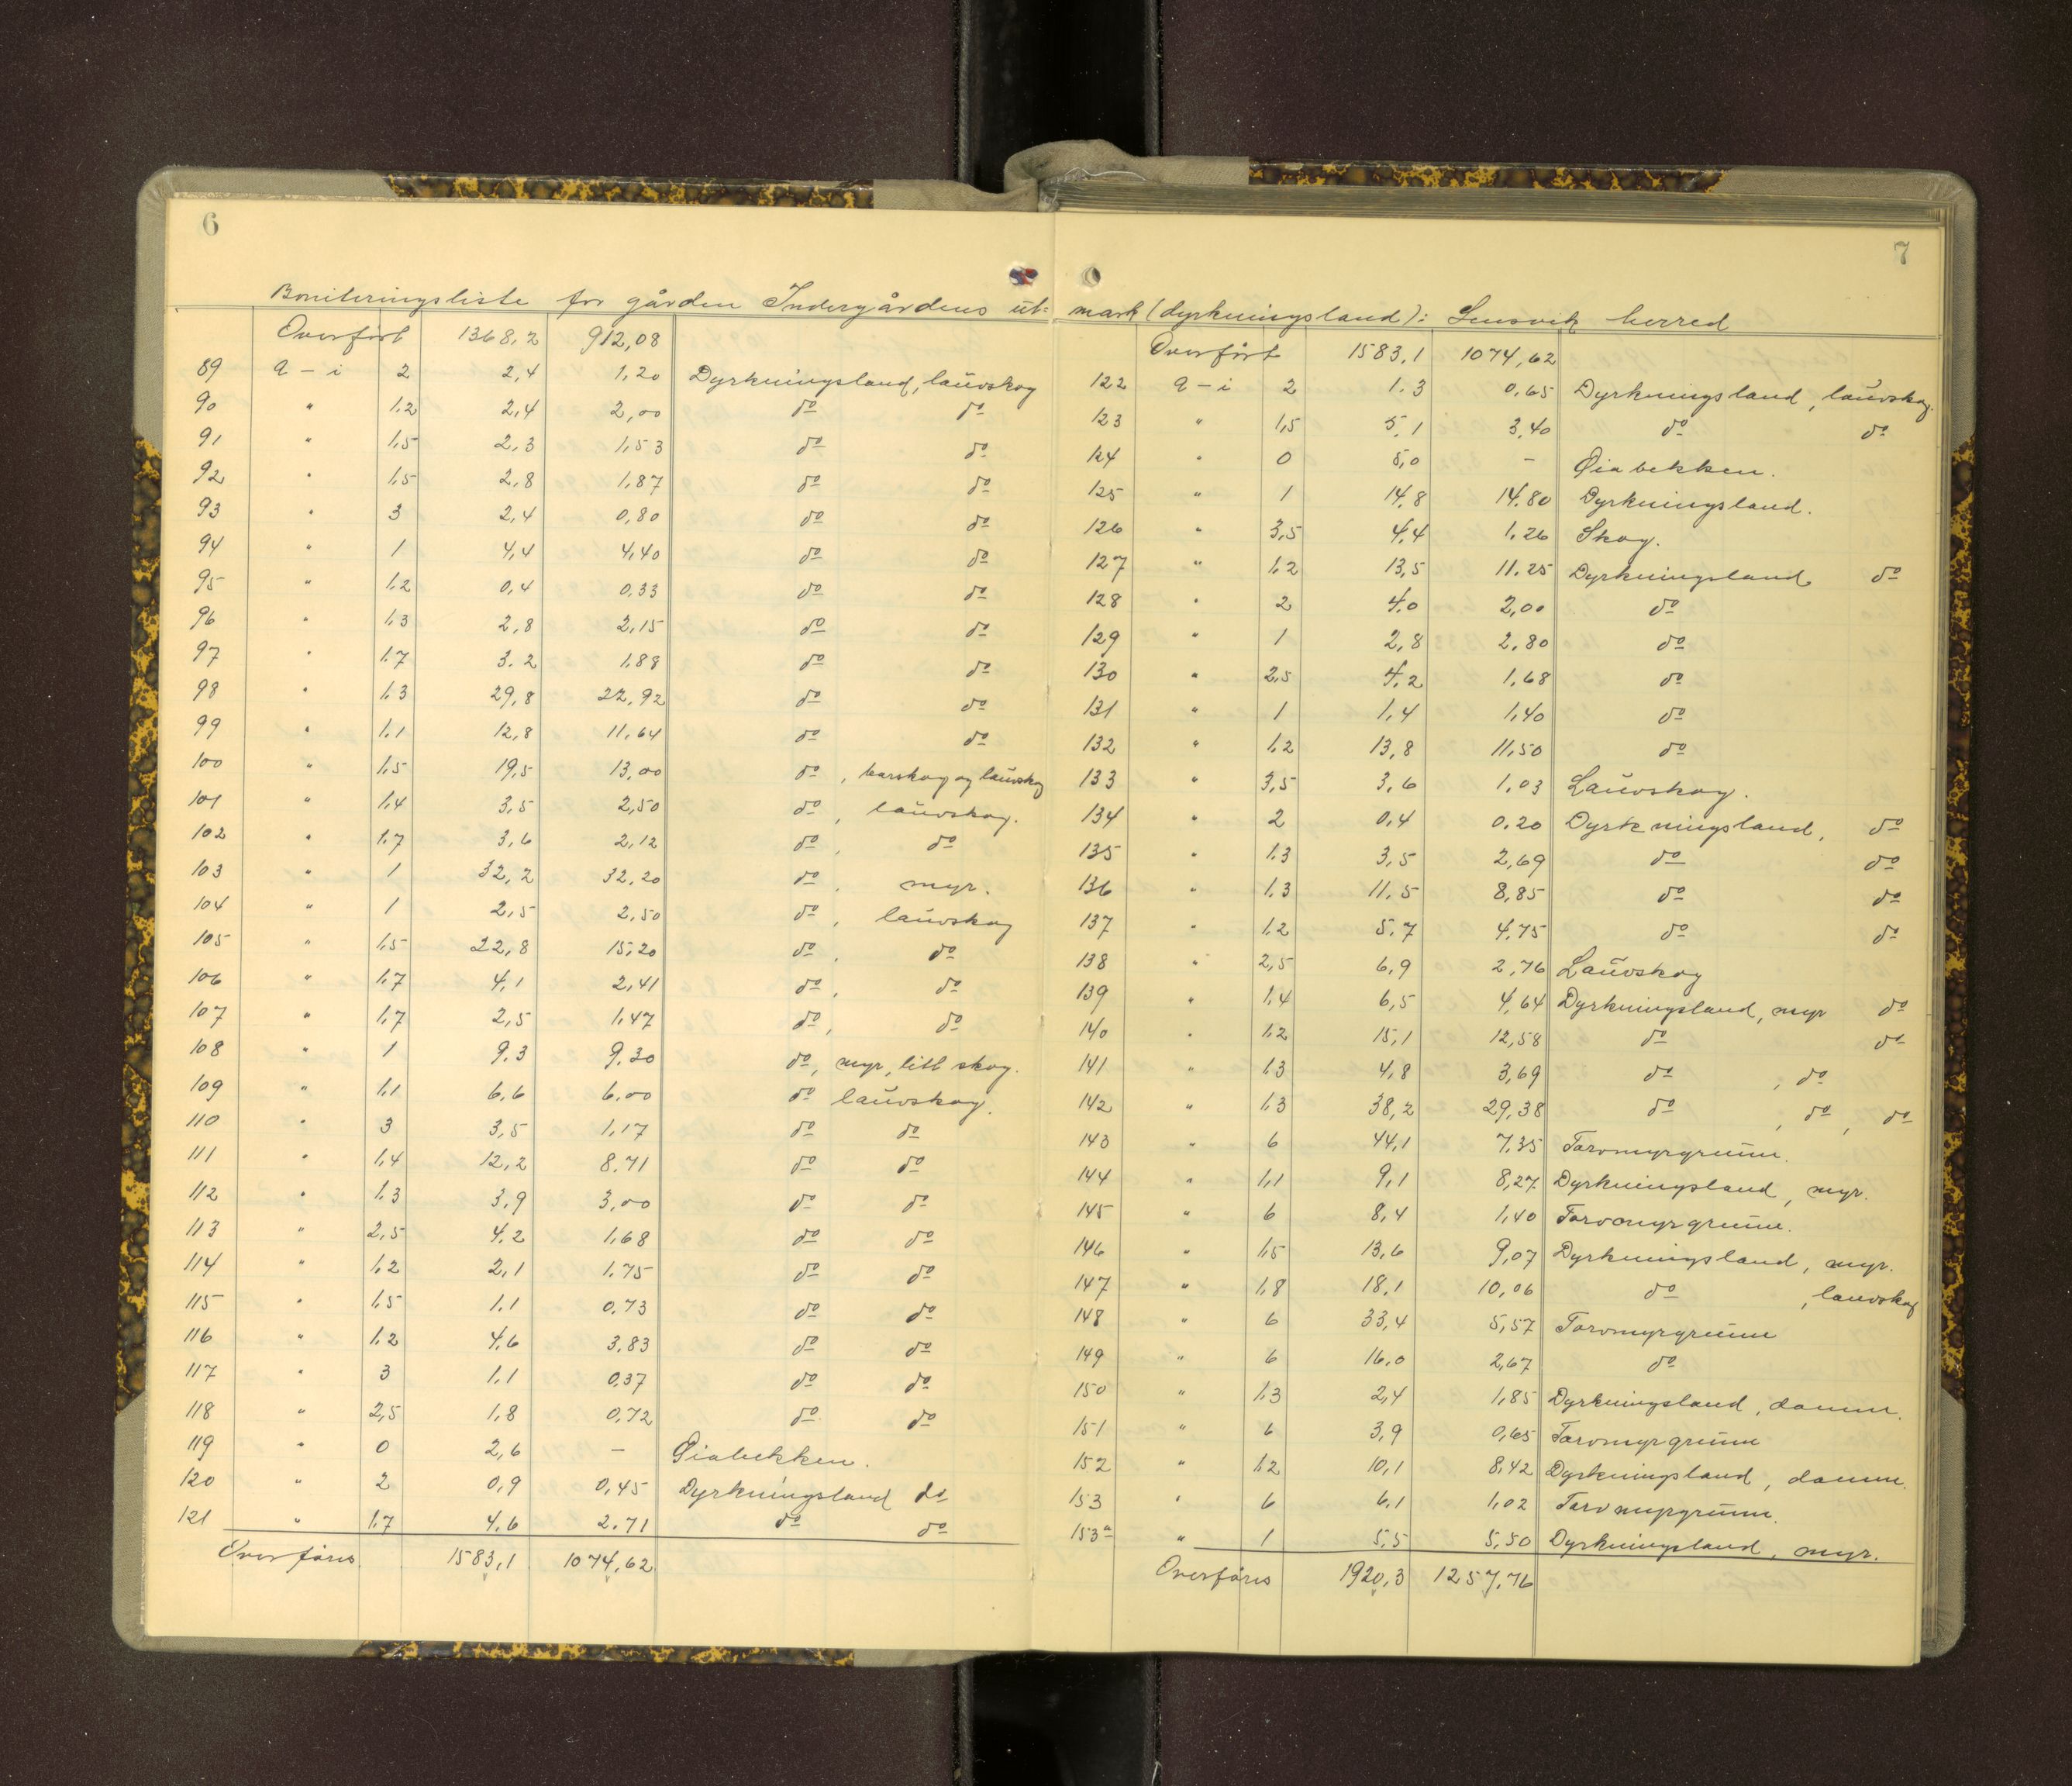 6
Boniteringsliste for gården Indergårdens ut-
Overført 1368,2 912,08
89 a - i 2 2,4 1,20 Dyrkningsland, lauvskog
90 " 1,2 2,4 2,00 do do
91 " 1,5 2,3 1,53 do do
92 " 1,5 2,8 1,87 do do
93 " 3 2,4 0,80 do do
94 " 1 4,4 4,40 do do
95 " 1,2 0,4 0,33 do do
96 " 1,3 2,8 2,15 do do
97 " 1,7 3.2 1,88 do do
98 " 1,3 29,8 22,92 do do
99 " 1,1 12,8 11,64 do do
100 " 1,5 19,5 13,00 do, barskog og lauvskog
101 " 1,4 3,5 2,50 do, lauvskog.
102 " 1,7 3,6 2,12 do, do
103 " 1 32,2 32,20 do, myr.
104 " 1 2,5 2,50 do, lauvskog
105 " 1,5 22,8 15,20 do, do
106 " 1,7 4,1 2,41 do, do
107 " 1,7 2,5 1,47 do, do
108 " 1 9.3 9.30 do, myr, litt skog.
109 " 1,1 6,6 6,00 do lauvskog.
110 " 3 3,5 1,17 do do
111 " 1,4 12,2 8,71 do do
112 " 1,3 3,9 3,00 do do
113 " 2,5 4,2 1,68 do do
114 " 1,2 2,1 1,75 do do
115 " 1,5 1,1 0,73 do do
116 " 1,2 4,6 3,83 do do
117 " 3 1,1 0,37 do do
118 " 2,5 1,8 0,72 do do
119 " 0 2,6 - Øiabekken.
120 " 2 0,9 0,45 Dyrkningsland do
121 " 1,7 4,6 2,71 do do
Overføres 1583,1 1074,62
7
mark (dyrkningsland): Lensvik herred
Overført 1583,1 1074,62
122 a - i 2 1.3 0,65 Dyrkningsland, lauvskog.
123 " 1,5 5,1 3,40 do do
124 " 0 5,0 - Øiabekken.
125 " 1 14,8 14,80 Dyrkningsland.
126 " 3,5 4,4 1,26 Skog.
127 " 1,2 13,5 11,25 Dyrkningsland do
128 " 2 4,0 2,00 do
129 " 1 2,8 2,80 do
130 " 2,5 4,2 1,68 do
131 " 1 1,4 1,40 do
132 " 1,2 13,8 11,50 do
133 " 3,5 3,6 1,03 Lauvskog.
134 " 2 0,4 0,20 Dyrkningsland, do
135 " 1,3 3,5 2,69 do do
136 " 1,3 11,5 8,85 do do
137 " 1,2 5,7 4,75 do do
138 " 2,5 6,9 2,76 Lauvskog
139 " 1,4 6,5 4,64 Dyrkningsland, myr do
140 " 1,2 15,1 12,58 do do
141 " 1,3 4,8 3,69 do, do
142 " 1,3 38,2 29,38 do, do, do
143 " 6 44,1 7,35 Torvmyrgrunn.
144 " 1,1 9,1 8,27 Dyrkningsland, myr.
145 " 6 8,4 1,40 Torvmyrgrunn.
146 " 1,5 13,6 9,07 Dyrkningsland, myr.
147 " 1,8 18,1 10,06 do, lauvskog
148 " 6 33,4 5,57 Torvmyrgrunn
149 " 6 16,0 2,67 do
150 " 1,3 2,4 1,85 Dyrkningsland, damm.
151 " 6 3,9 0,65 Torvmyrgrunn
152 " 1,2 10,1 8,42 Dyrkningsland, damm.
153 " 6 6,1 1,02 Torvmyrgrunn.
153a " 1 5,5 5,50 Dyrkningsland, myr.
Overføres 1920,3 1257,76